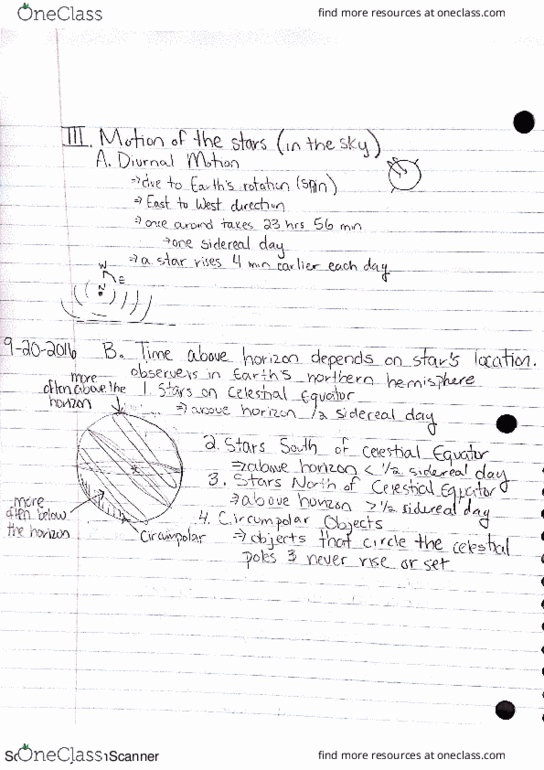 OneClass
find more resources at oneclass.com
III. Motion of the stars (in the sky)
A. Diurnal Motion
⇒ due to Earth's rotation (spin)
⇒ East to West direction
⇒ once around takes 23 hrs 56 min
→ one sidereal day
⇒ a star rises 4 min earlier each day
W
E
N
9-20-2016
B. Time above horizon depends on star's location.
observers in Earth's northern hemisphere
more
often above the
horizon
1. Stars on Celestial Equator
⇒ above horizon 1/2 sidereal day
2. Stars South of Celestial Equator
⇒ above horizon < 1/2 sidereal day
3. Stars North of Celestial Equator
⇒ above horizon > 1/2 sidereal day
more
often below
the horizon
Circumpolar
4. Circumpolar Objects
⇒ objects that circle the celestial
poles & never rise or set
OneClass
Scanner
find more resources at oneclass.com